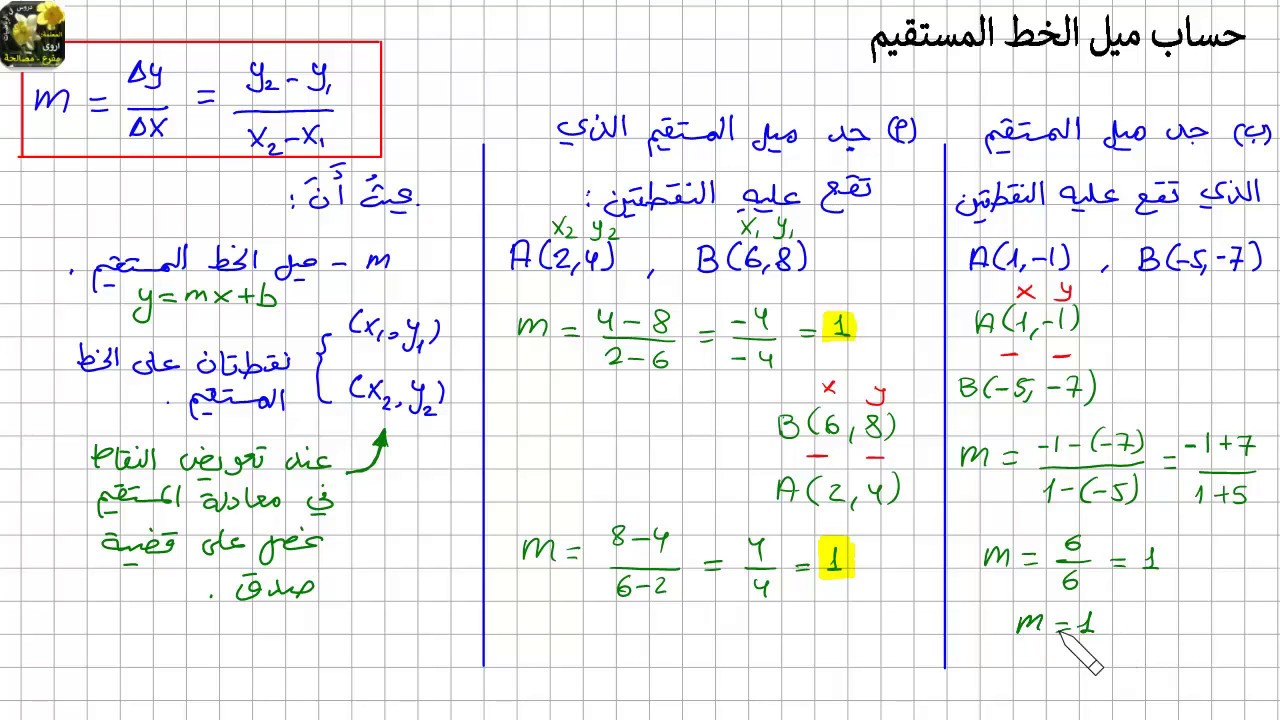 حساب ميل الخط المستقيم
دروس في الرياضيات
المعلمة:
اروى
مفرع - مصالحة
m = Δy/Δx = (y₂ - y₁)/(x₂ - x₁)
حيثُ أَنَّ :
m - ميل الخط المستقيم .
y = mx + b
(x₁, y₁)
نقطتان على الخط
المستقيم .
(x₂, y₂)
عند تعويض النقاط
في معادلة المستقيم
نحصل على قضية
صدق .
(م) جد ميل المستقيم الذي
تقع عليه النقطتين :
x₂ y₂ x₁ y₁
A(2,4) , B(6,8)
m = (4-8)/(2-6) = -4/-4 = 1
x y
B(6,8)
A(2,4)
m = (8-4)/(6-2) = 4/4 = 1
(ب) جد ميل المستقيم
الذي تقع عليه النقطتين
A(1,-1) , B(-5,-7)
x y
A(1,-1)
B(-5,-7)
m = (-1-(-7))/(1-(-5)) = (-1+7)/(1+5)
m = 6/6 = 1
m = 1